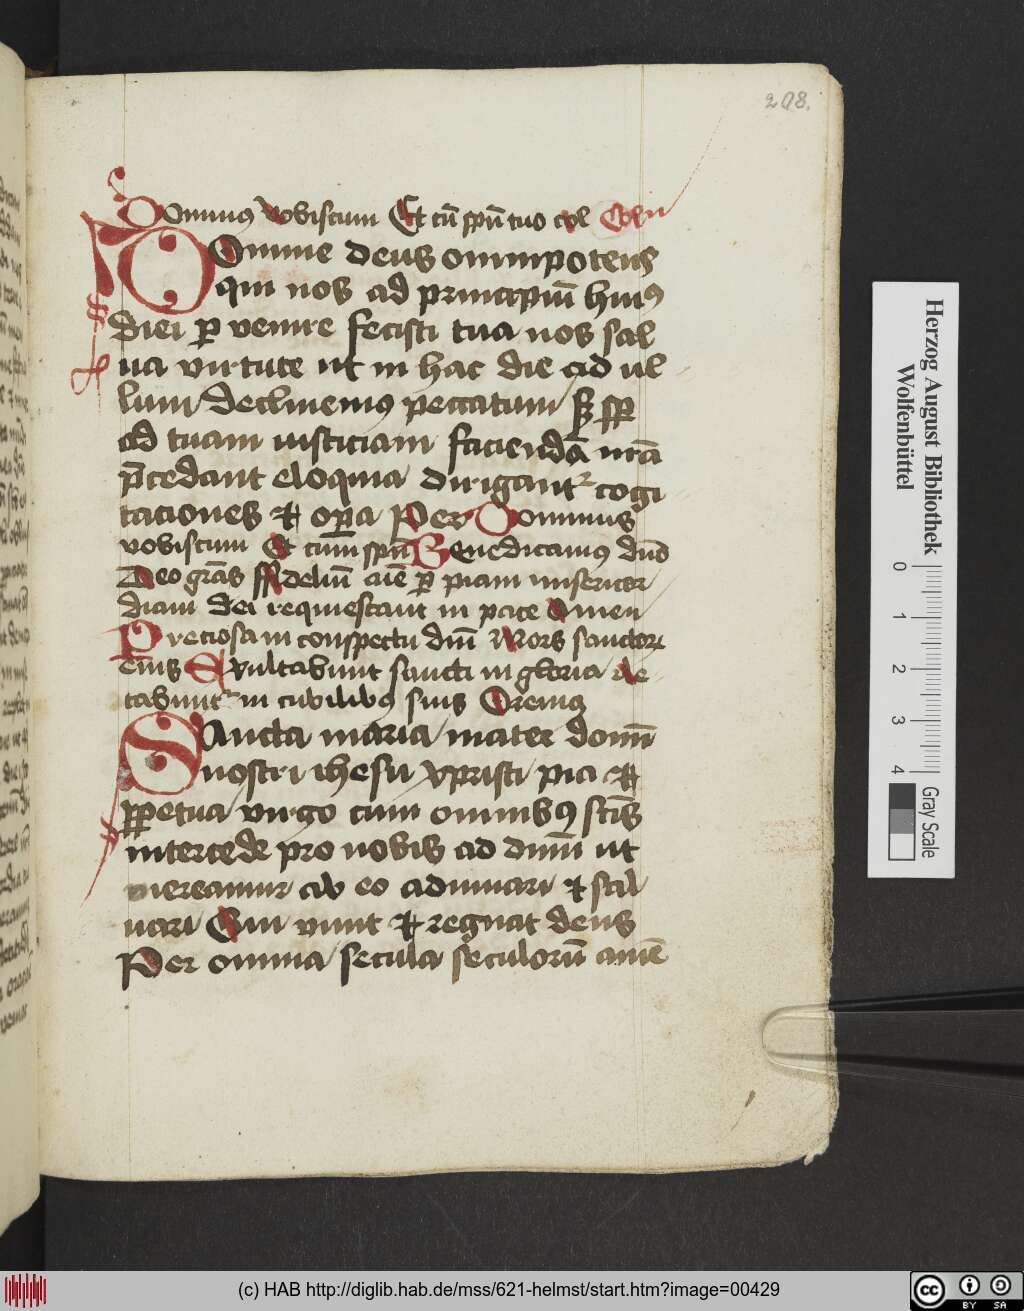 208.
Dominus vobiscum Et cū spū tuo col Coln
Domine deus omnipotens
qui nos ad principiū huiꝰ
diei ꝑ venire fecisti tua nos sal
ua virtute ut in hac die ad ul
lum declinemꝰ peccatum sꝫ sꝑ
ad tuam iusticiam faciendā nr̄a
p̄cedant eloquia dirigantᷣ cogi
taciones et oꝑa Per Dominus
vobiscum Et cum spū Benedicamꝰ dnō
Deo gr̄as ffideliū aīe ꝑ piam misericor
diam dei requiescant in pace Amen
Preciosa in conspectu dnī Mors sanctorꝝ
eius Exultabunt sancti in gloria Le
tabuntᷣ in cubilibꝰ suis Oremꝰ
Sancta maria mater dominī
nostri ihesu xpristi pia et
ꝑpetua virgo cum omnibꝰ sctīs
intercede pro nobis ad dnm̄ ut
mereamur ab eo adiuuari et sal
uari Qui viuit et regnat deus
Per omnia secula seculorū amē
Herzog August Bibliothek
Wolfenbüttel
0 1 2 3 4
Gray Scale
(c) HAB http://diglib.hab.de/mss/621-helmst/start.htm?image=00429
cc BY SA